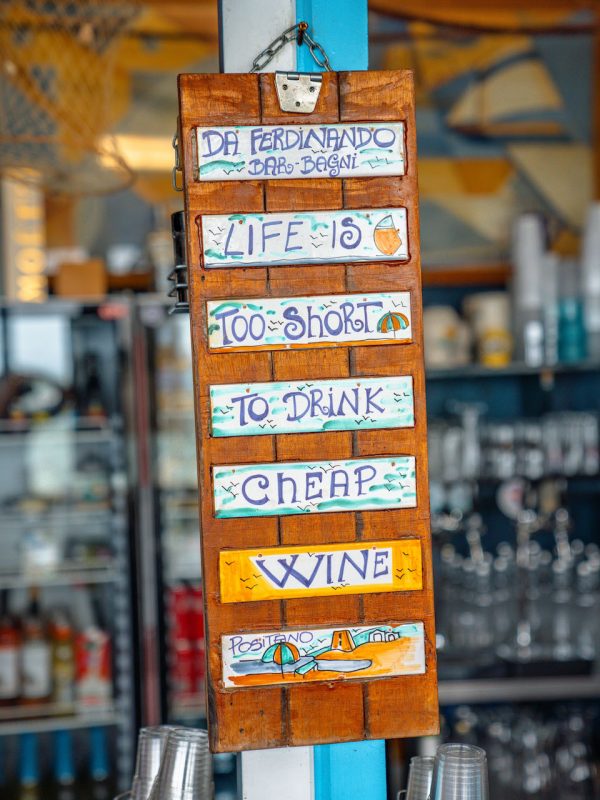 DA FERDINANDO
BAR-BAGNI
LIFE IS
TOO SHORT
TO DRINK
CHEAP
WINE
POSITANO